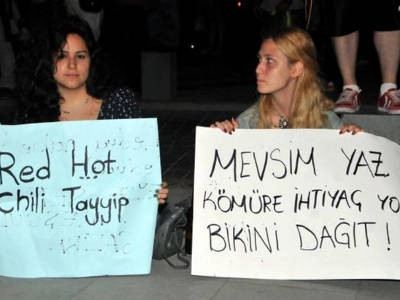 Red Hot
Chili Tayyip
MEVSIM YAZ
KÖMÜRE İHTİYAÇ YO
BİKİNİ DAĞIT !